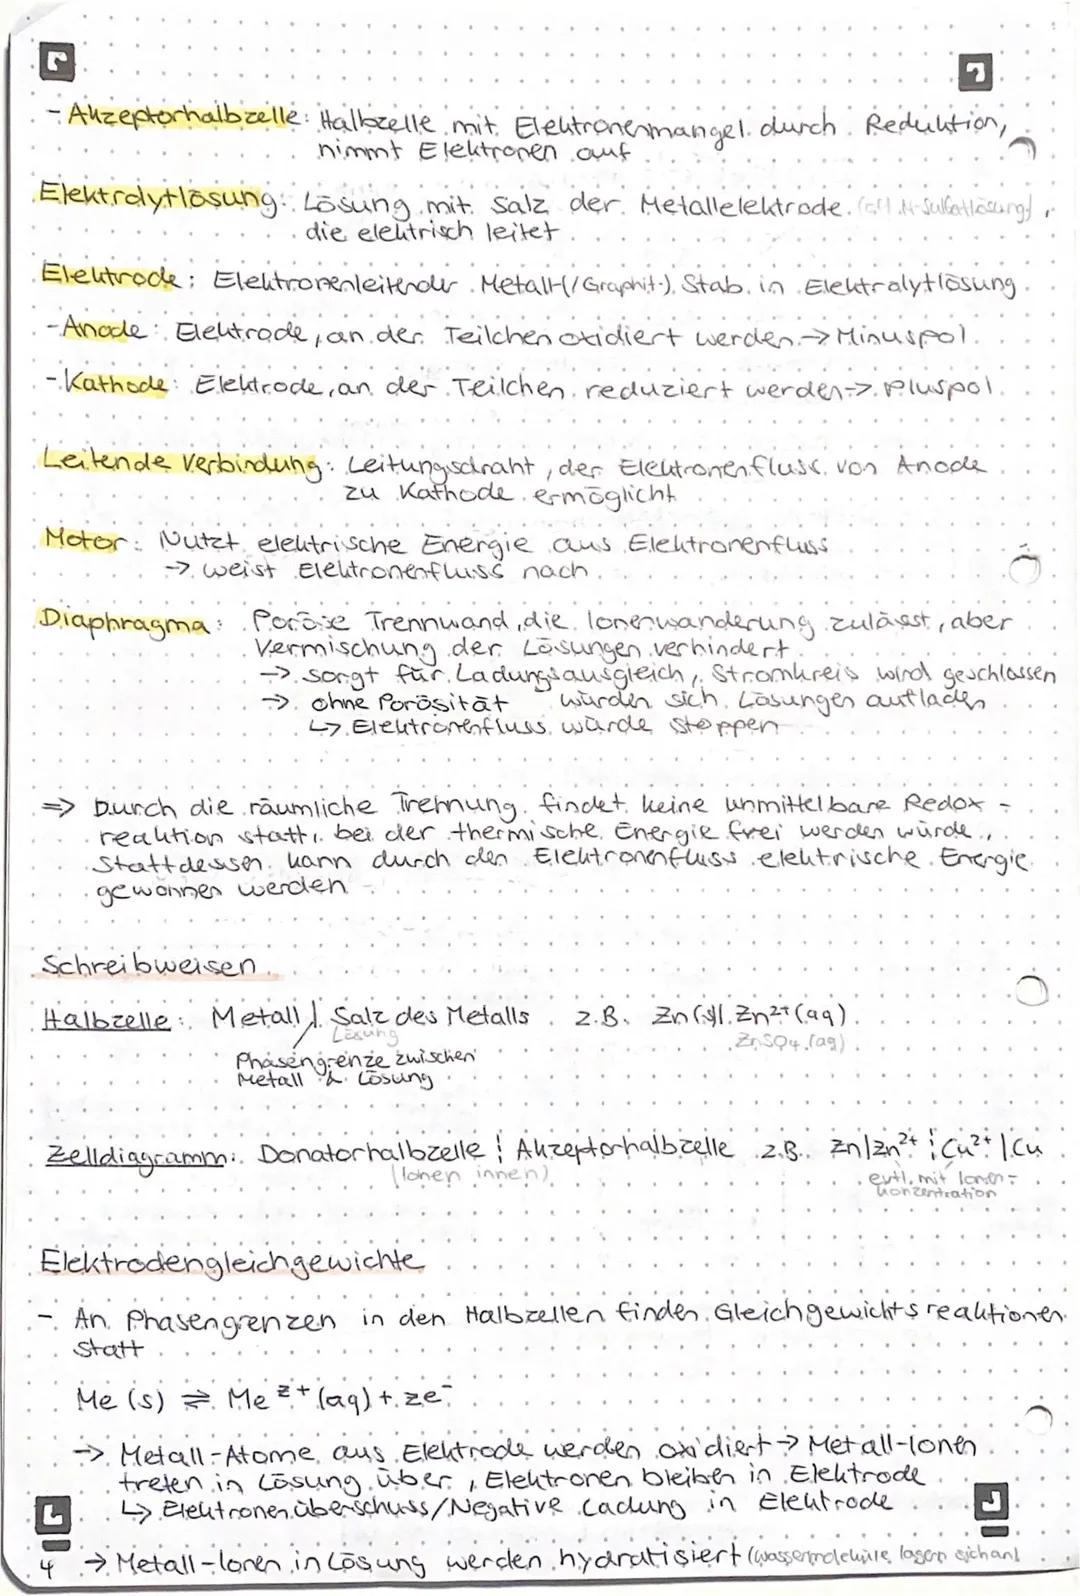 - Akzeptorhalbzelle: Halbzelle mit Elektronenmangel durch Reduktion,
nimmt Elektronen auf
Elektrolytlösung: Lösung mit Salz der Metallelektrode (oft M-Sulfatlösung),
die elektrisch leitet
Elektrode: Elektronenleitender Metall-(/Graphit-) Stab in Elektralytlösung
- Anode: Elektrode, an der Teilchen oxidiert werden → Minuspol
- Kathode: Elektrode, an der Teilchen reduziert werden → Pluspol
Leitende Verbindung: Leitungsdraht, der Elektronenfluss von Anode
zu Kathode ermöglicht
Motor: Nutzt elektrische Energie aus Elektronenfluss
→ weist Elektronenfluss nach
Diaphragma: Poröse Trennwand, die Ionenwanderung zulässt, aber
Vermischung der Lösungen verhindert
→ sorgt für Ladungsausgleich, Stromkreis wird geschlossen
→ ohne Porösität würden sich Lösungen aufladen
↳ Elektronenfluss würde stoppen
⇒ Durch die räumliche Trennung findet keine unmittelbare Redox-
reaktion statt, bei der thermische Energie frei werden würde,
Stattdessen kann durch den Elektronenfluss elektrische Energie
gewonnen werden
Schreibweisen
Halbzelle: Metall | Salz des Metalls z.B. Zn(s)|Zn²⁺(aq)
Lösung ZnSO₄(aq)
Phasengrenze zwischen
Metall & Lösung
Zelldiagramm: Donatorhalbzelle ¦ Akzeptorhalbzelle z.B. Zn|Zn²⁺ ¦ Cu²⁺|Cu
(Ionen innen) evtl. mit Ionen-
konzentration
Elektrodengleichgewichte
- An Phasengrenzen in den Halbzellen finden Gleichgewichtsreaktionen
statt
Me (s) ⇌ Me ᶻ⁺ (aq) + ze⁻
→ Metall-Atome aus Elektrode werden oxidiert → Metall-Ionen
treten in Lösung über, Elektronen bleiben in Elektrode
↳ Elektronenüberschuss/Negative Ladung in Elektrode
4 → Metall-Ionen in Lösung werden hydratisiert (Wassermoleküle lagern sich an)